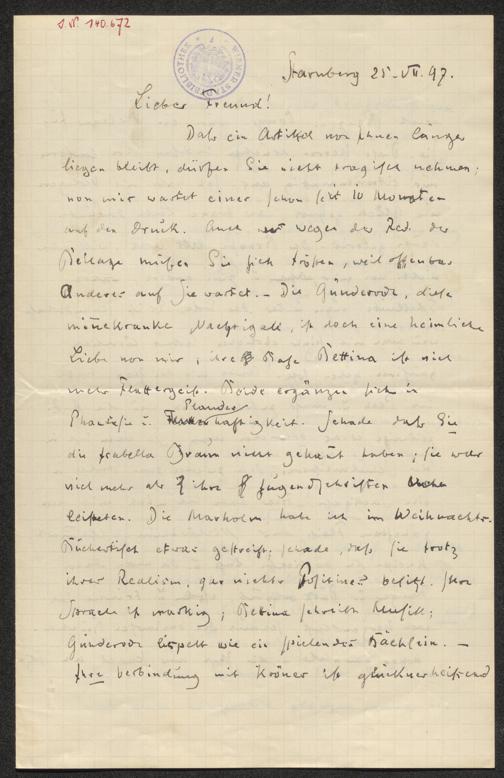 J. N. 140.672
WIENER STADTBIBLIOTHEK
Starnberg 25. VII. 97.
Lieber Freund!
Daß ein Artikel von Ihnen länger
liegen bleibt, dürfen Sie nicht tragisch nehmen;
von mir wartet einer schon seit 10 Monaten
auf den Druck. Auch wegen der Red. der
Beilage müßen Sie sich trösten, weil offenbar
Anderes auf Sie wartet. – Die Günderode, diese
minnekranke Nachtigall, ist doch eine heimliche
Liebe von mir, ihre Base Bettina ist viel
mehr Flattergeist. Beide ergänzen sich in
Phantasie u. Plauderhaftigkeit. Schade daß Sie
die Isabella Braun nicht gekannt haben; sie war
viel mehr als ihre Jugendschriften
leisteten. Die Marholm habe ich im Weihnachts-
Büchertisch etwas gestreift; schade, daß sie trotz
ihrer Realism. gar nichts Positives besitzt. Ihre
Sprache ist markig; Bettina schreibt Musik;
Günderode lispelt wie ein spielendes Bächlein. –
Ihre Verbindung mit Kröner ist glückverheißend